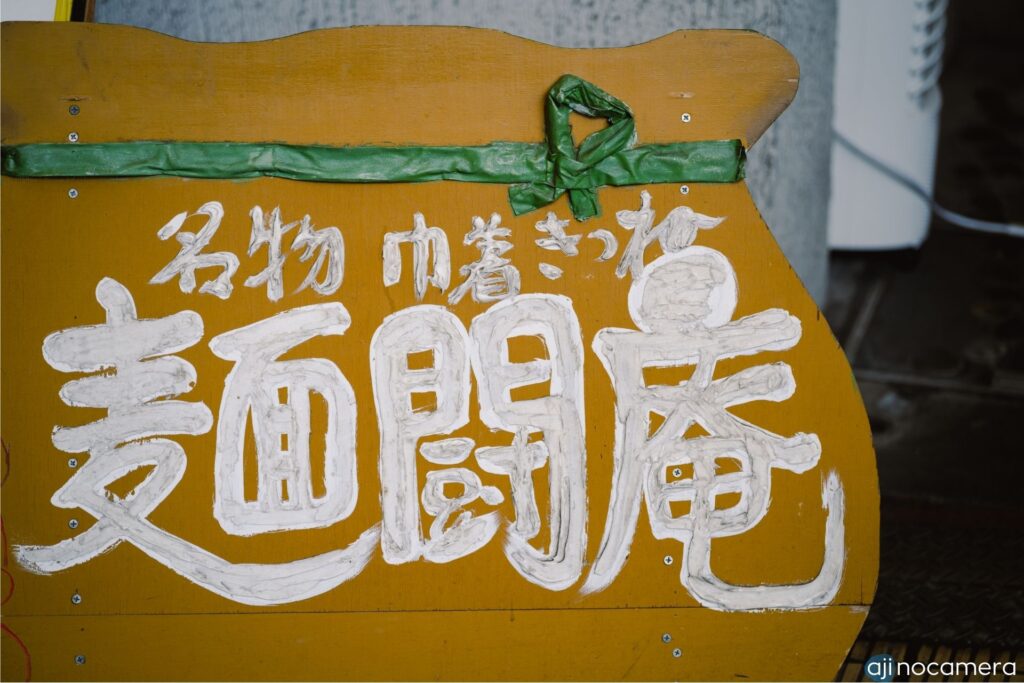 名物 巾着きつね
麺闘庵
aji nocamera